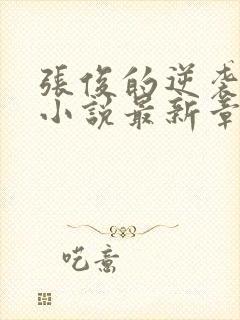 張俊的逆袭
小說最新章
呓意